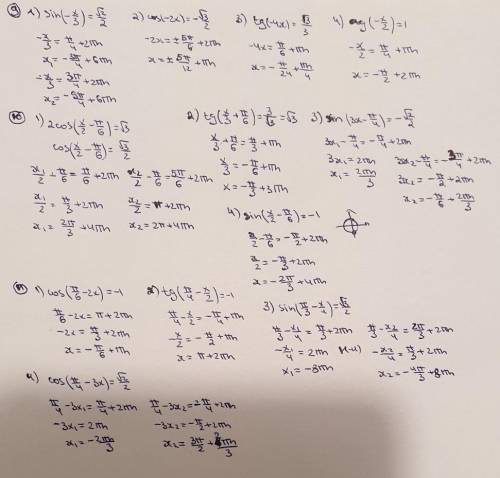 ⑨ 1) sin(-x/3)=√2/2
-x/3=π/4+2πn
x₁=-3π/4+6πn
-x/3=3π/4+2πn
x₂=-9π/4+6πn
2) cos(-2x)=-√3/2
-2x=±5π/6+2πn
x=±5π/12+πn
3) tg(-4x)=√3/3
-4x=π/6+πn
x=-π/24+πn/4
4) (-x/2)=1
-x/2=π/4+πn
x=-π/2+2πn
⑩ 1) 2cos(x/2-π/6)=√3
cos(x/2-π/6)=√3/2
x₁/2-π/6=π/6+2πn
x₁/2=π/3+2πn
x₁=2π/3+4πn
x₂/2-π/6=5π/6+2πn
x₂/2=π+2πn
x₂=2π+4πn
2) tg(x/3+π/6)=3/√3=√3
x/3+π/6=π/3+πn
x/3=-π/6+πn
x=-π/3+3πn
3) sin(3x-π/4)=-√2/2
3x₁-π/4=-π/4+2πn
3x₁=2πn
x₁=2πn/3
3x₂-π/4=-3π/4+2πn
3x₂=-π/2+2πn
x₂=-π/6+2πn/3
4) sin(x/2-π/6)=-1
x/2-π/6=-π/2+2πn
x/2=-π/3+2πn
x=-2π/3+4πn
⑪ 1) cos(π/6-2x)=-1
π/6-2x=π+2πn
-2x=π/3+2πn
x=-π/6+πn
2) tg(π/4-x/2)=-1
π/4-x/2=-π/4+πn
-x/2=-π/2+πn
x=π+2πn
3) sin(π/3-x/4)=√3/2
π/3-x₁/4=π/3+2πn
-x₁/4=2πn
x₁=-8πn
π/3-x₂/4=2π/3+2πn
-x₂/4=π/3+2πn
x₂=-4π/3+8πn
4) cos(π/4-3x)=√2/2
π/4-3x₁=π/4+2πn
-3x₁=2πn
x₁=-2πn/3
-3x₂=-π/2+2πn